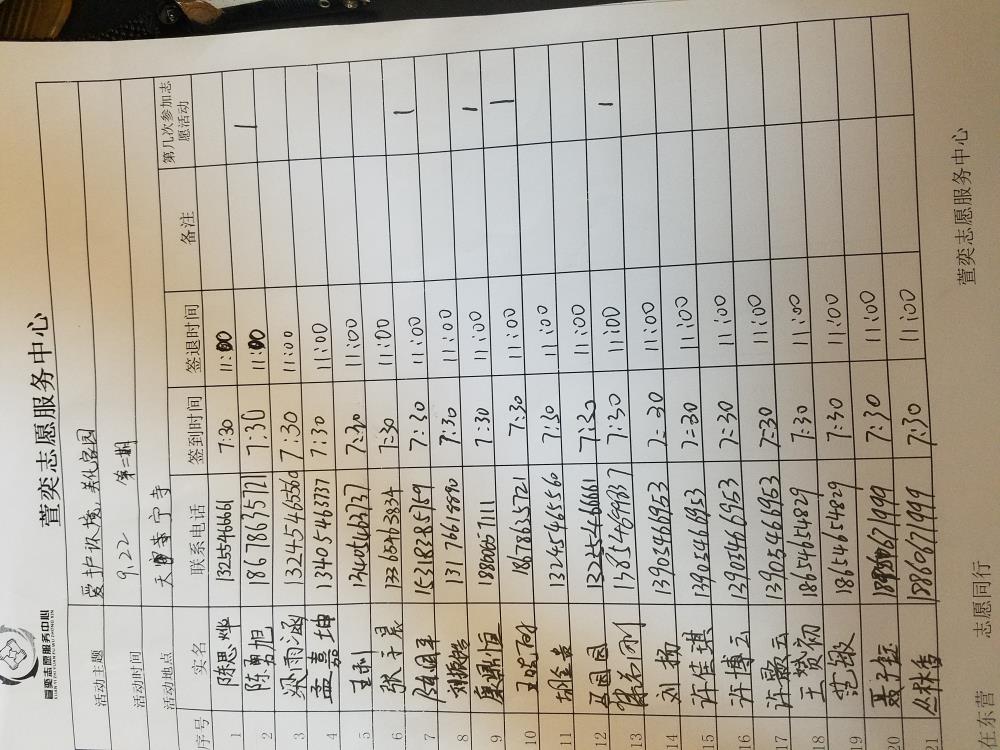 萱奕志愿服务中心
萱奕志愿服务中心
活动主题 爱护环境,美化家园
活动时间 9.22 第二期
活动地点 天宁寺
序号 实名 联系电话 签到时间 签退时间 备注 第几次参加志愿活动
1 陈思烨 13255466661 7:30 11:00
2 陈君旭 18678635721 7:30 11:00 1
3 梁雨涵 13245465560 7:30 11:00
4 孟嘉坤 13405463737 7:30 11:00
5 王利 13405463737 7:30 11:00
6 张子晨 13356463834 7:30 11:00
7 15218385759 7:30 11:00 1
8 13176618890 7:30 11:00
9 18806657111 7:30 11:00 1
10 18678635721 7:30 11:00 1
11 13245465560 7:30 11:00
12 13225466661 7:30 11:00
13 15854699837 7:30 11:00 1
14 刘扬 13905466953 7:30 11:00
15 许佳琪 13905466953 7:30 11:00
16 许博云 13905466953 7:30 11:00
17 许云 13905466953 7:30 11:00
18 王赞初 18654654829 7:30 11:00
19 范敏 18654654829 7:30 11:00
20 聂子钰 7:30 11:00
21 丛林香 18860671999 7:30 11:00
在东营 志愿同行 萱奕志愿服务中心